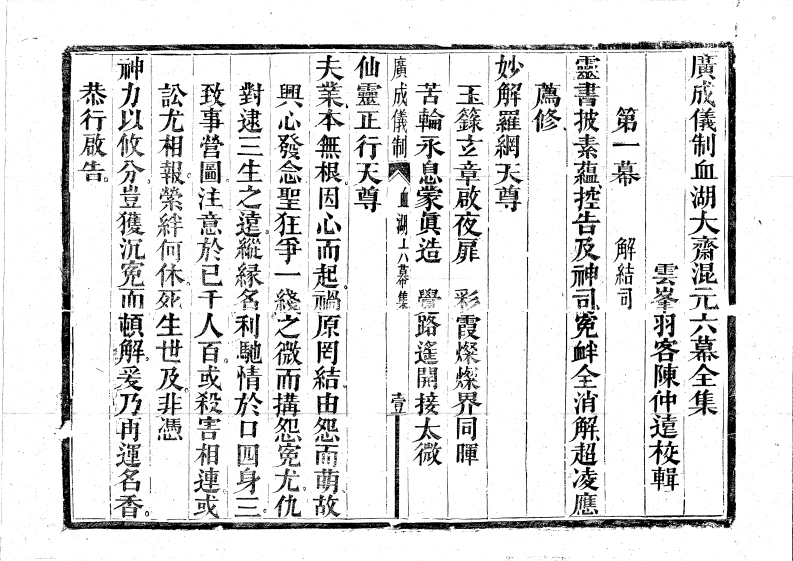 廣成儀制血湖大齋混元六幕全集
雲峯羽客陳仲遠校輯
第一幕　解結司
靈書披素蘊控告及神司寃衅全消解超凌應
薦修
妙解羅網天尊
玉籙玄章啟夜扉　彩霞燦燦界同暉
苦輪永息蒙眞造　覺路遙開接太微
廣成儀制　血湖上六幕集　壹
仙靈正行天尊
夫業本無根因心而起禍原罔結由怨而萌故
興心發念聖狂爭一綫之微而搆怨寃尤仇
對逮三生之遠縱緣名利馳情於口四身三
致事營圖注意於已千人百或殺害相連或
訟尤相報縈絆何休死生世及非憑
神力以攸分豈獲沉寃而頓解爰乃再運名香。
恭行啟告。